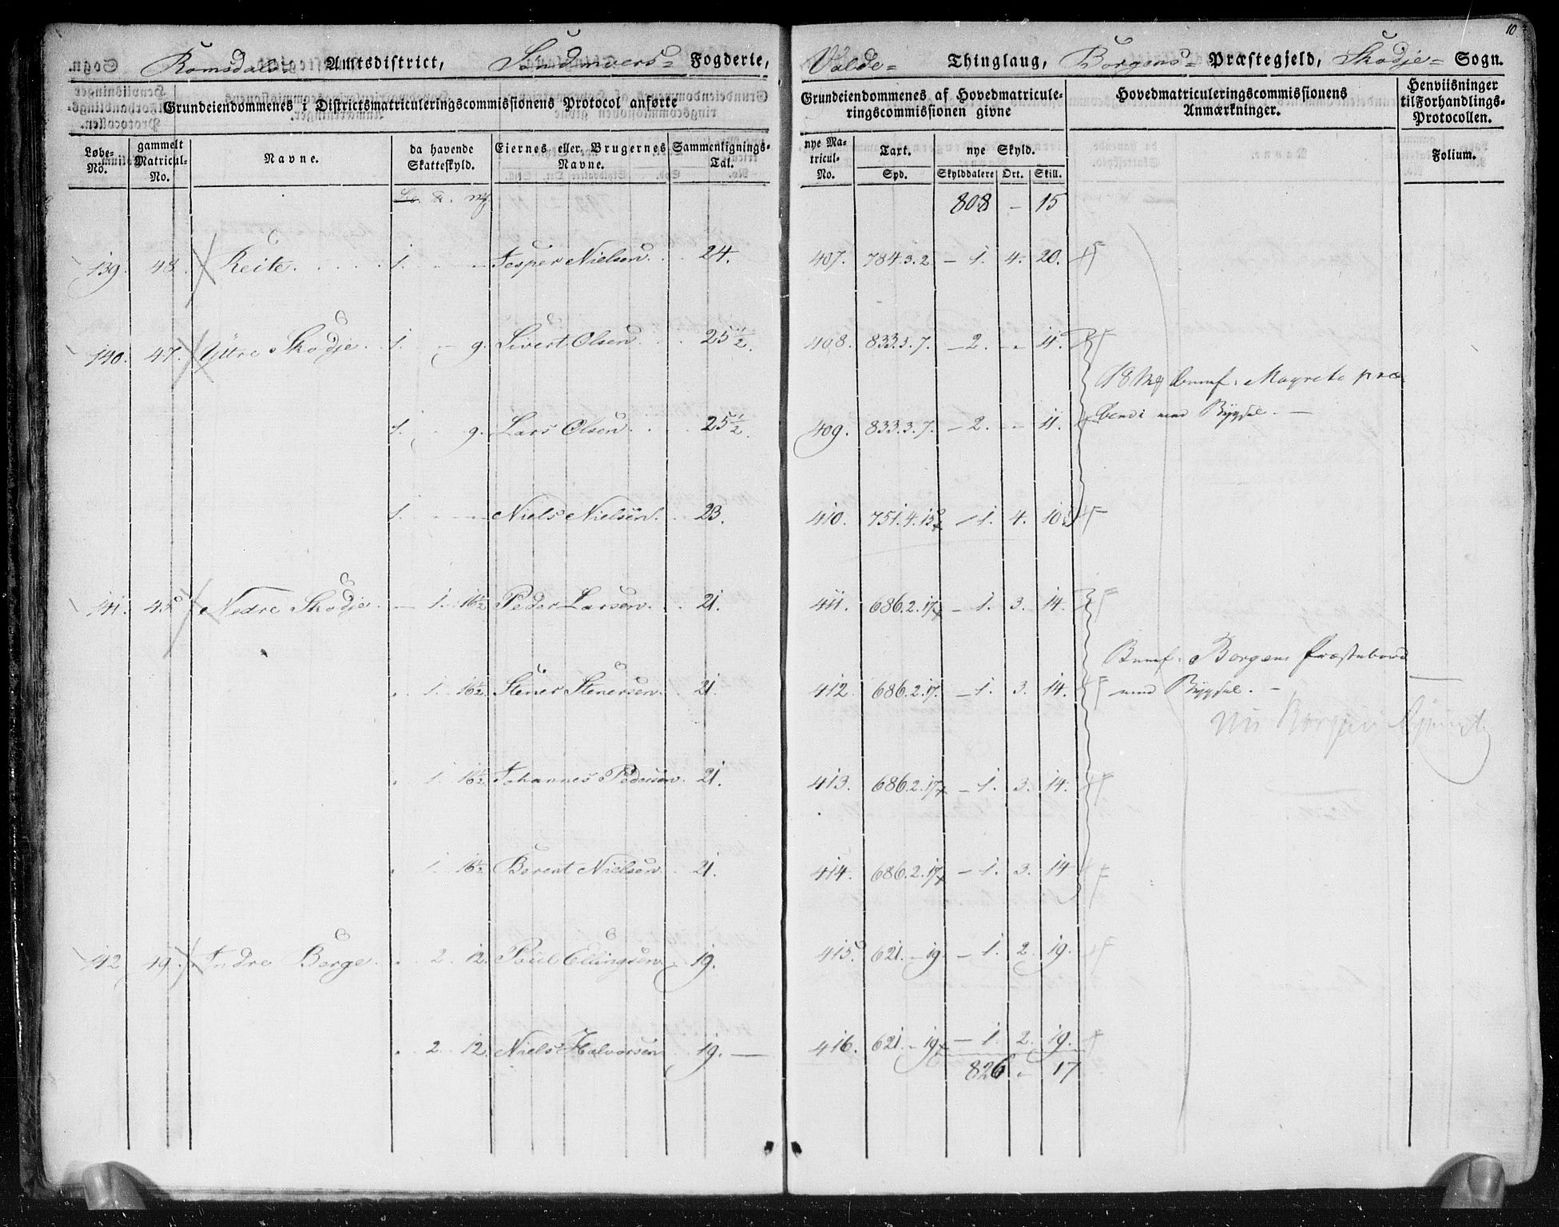 10
Romsdals Amtsdistrict, Søndmøers Fogderie, Valde- Thinglaug, Borgens- Præstegjeld, Skodje- Sogn.
Grundeiendommenes i Districtsmatriculeringscommissionens Protocol anførte
Grundeiendommenes af Hovedmatriculeringscommissionen givne
Hovedmatriculeringscommissionens Anmærkninger.
Henviisninger til Forhandlings-Protocollen.
Løbe-No. gammelt Matricul-No. Navne. da havende Skatteskyld. Eiernes eller Brugernes Navne. Sammenlignings-Tal. nye Matricul-No. Taxt. Spd. nye Skyld. Skylddalere Ort. Skill. Folium.
808 - 15
139. 48. Reite. 1. - - Jesper Nielsen 24. 407. 784.3.2 - 1. 4. 20.
140. 47. Yttre Skodje. 1. - 9. Sivert Olsen 25½. 408. 833.3.7. - 2. - 11.
1. - 9. Lars Olsen 25½. 409. 833.3.7. - 2. - 11.
1. - - Niels Nielsen. 23. 410. 751.4.15 - 1. 4. 10
141. 45. Nedre Skodje. - 1. 16½ Peder Larsen 21. 411. 686.2.17 - 1. 3. 14.
. 1. 16½ Stener Stenersen 21. 412. 686.2.17. - 1. 3. 14.
. 1. 16½ Johannes Pedersen 21. 413. 686.2.17 - 1. 3. 14.
. 1. 16½ Berent Nielsen 21. 414. 686.2.17 - 1. 3. 14
142 49. Indre Berge. . 2. 12. Poul Ellingsen 19. 415. 621. - 19 - 1. 2. 19.
. 2. 12. Niels Halvorsen 19. - 416. 621. - 19 - 1. 2. 19.
826 - 17
18 Benef. Magrete præbende med Bygsel. -
Benef. Borgens Præstebord med Bygsel. -